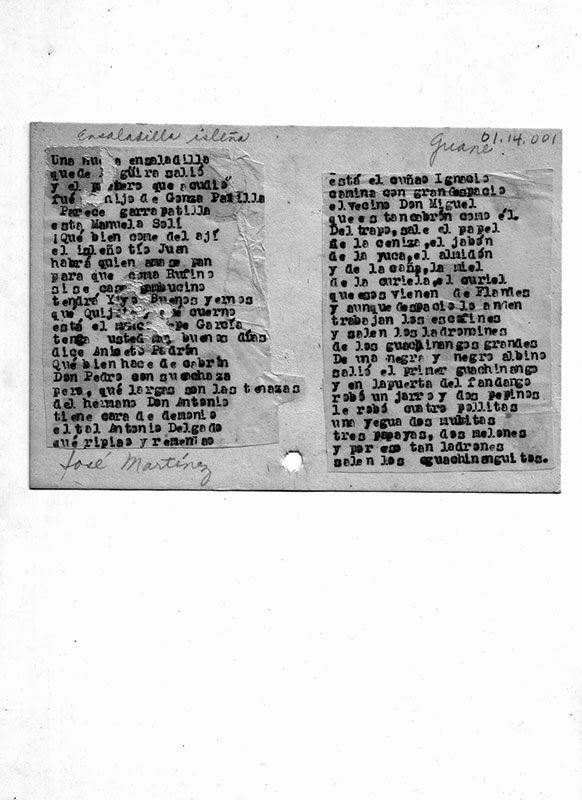 Ensaladilla isleña
Guane
01.14.001
Una ensaladilla
quede güira salió
y el que acudió
fué hijo de Gonza Padilla
Parece garrapatilla
esta Manuela Solí
¡Qué bien come del ají
el isleño tío Juan
habrá quien amase pan
para que coma Rufino
si se casa
tendrá Yiyo Buenos yernos
que cuerno
está el García
tenga usted muy buenos días
dice Aniceto Padrón
Qué bien hace de cabrón
Don Pedro con su
pero, qué largas son las tenazas
del hermano Don Antonio
tiene cara de demonio
el tal Antonio Delgado
qué ripiao y remendao
José Martínez
está el cuñao Ignacio
camina con grandespacio
elvecino Don Miguel
quees tancabrón como él.
Del trapo, sale el papel
de la ceniza,el jabón
de la yuca,el almidón
y de la caña,la miel
de la curiela,el curiel
queesos vienen de Flandes
y aunque despacio lo anden
trabajan los escofines
y salen los ladromines
de los guachinangos grandes
De una negra y negro albino
salió el primer guachinango
y en lapuerta del fandango
robó un jarro y dos pepinos
le robó cuatro pollitas
una yegua dos mulitas
tres papayas, dos melones
y por eso tan ladrones
salen los guachinanguitos.